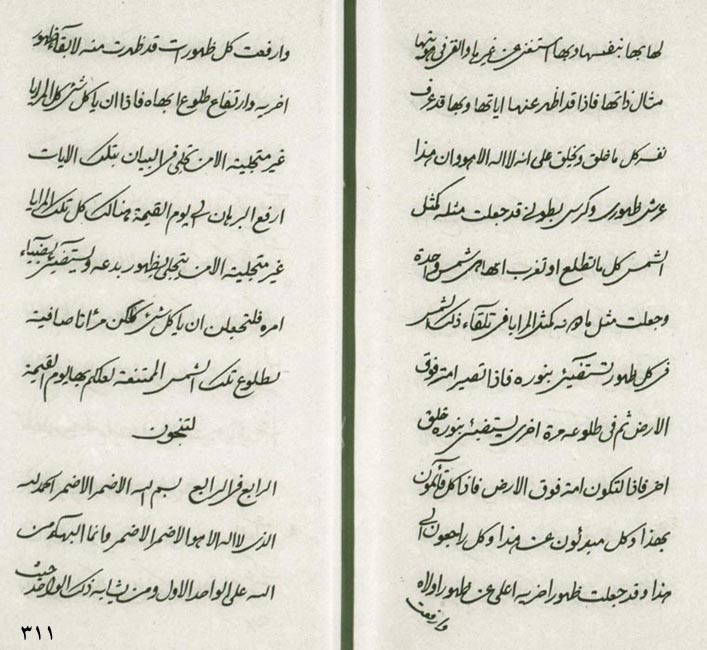 لها بها بنفسها و بها استغنى عن غيرها و القرنى هويتها
مثال ذاتها فاذا قد اظهر عنها اياتها و بها قد عرف
نفسه كل ما خلق و يخلق على انه لا اله الا هو و ان هذا
عرش ظهورى و كرسى بطونى قد جعلت مثله كمثل
الشمس كل ما تطلع او تغرب انها هى شمس واحدة
و جعلت مثل ما دونه كمثل المرايا فى تلقاء ذلك الشمس
فى كل ظهور تستضيئن بنوره فاذا تصير امة فوق
الارض ثم فى طلوعه مرة اخرى يستضيئن بنوره خلق
اخر فاذا لتكون امة فوق الارض فاذا كل قائمون
بهذا و كل مبدئون عن هذا و كل راجعون الى
هذا و قد جعلت ظهور اخريه اعلى عن ظهور اولاه
و ارفعت
و ارفعت كل ظهورات قد ظهرت منه لابقاء ظهور
اخريه و ارتفاع طلوع ابهاه فاذا ان يا كل شئ كل المرايا
غير متجلية الا من تجلى فى البيان بتلك الايات
ارفع البرهان لى يوم القيمة هنالك كل تلك المرايا
غير متجلية الا من يتجلى بظهور بدعه و يستضيئن بضياء
امره فلتجعلن ان يا كل شئ مرءاتا صافية
لطلوع تلك الشمس الممتنعة لعلكم بها يوم القيمة
لتنجون
الرابع فى الرابع بسم الله الاضمر الاضمر الحمد لله
الذى لا اله الا هو الاضمر الاضمر و انما البهاء من
الله على الواحد الاول و من يشابه ذلك الواحد حيث
٣١١